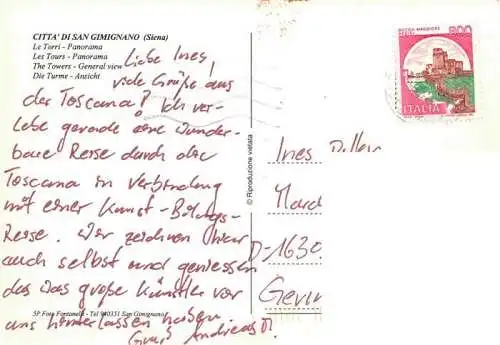 CITTA' DI SAN GIMIGNANO (Siena)
Le Torri - Panorama
Les Tours - Panorama
The Towers - General view
Die Turme - Ansicht
Liebe Ines,
viele Grüße aus
der Toscana! Ich ver-
lebe gerade eine wunder-
bare Reise durch die
Toscana in Verbindung
mit einer Kunst-Bildungs-
Reise. Wir zeichnen hier
auch selbst und geniessen
das was große Künstler vor
uns hinterlassen haben.
Gruß Andreas
5P Foto Fontanelli - Tel 940351 San Gimignano
© Riproduzione vietata
ROCCA MAGGIORE
800
ITALIA
Ines
D-1630